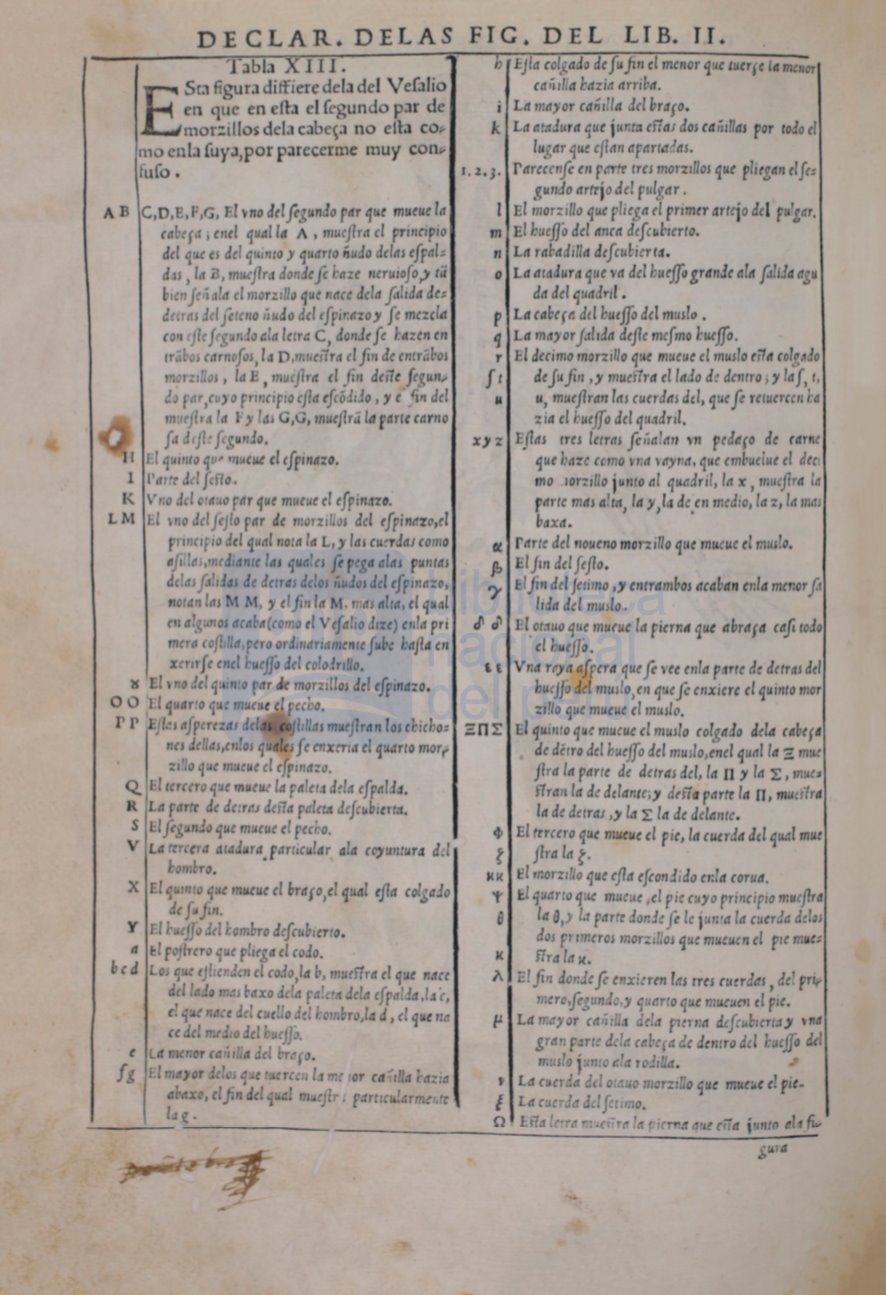 DECLAR. DELAS FIG. DEL LIB. II.
Tabla XIII.
ESta figura differe dela del Vesalio
en que en esta el segundo par de
morzillos dela cabeça no esta co-
mo enla suya, por parecerme muy con-
fuso.
A B C, D, E, F, G, El vno del segundo par que mueue la
cabeça; enel qual la A, muestra el principio
del que es del quinto y quarto ñudo delas espal-
das, la B, muestra donde se haze neruioso, y tã
bien señala el morzillo que nace dela salida de-
detras del seteno ñudo del espinazo y se mezcla
con este segundo ala letra C, donde se hazen en
trãbos carnosos, la D, muestra el fin de entrãbos
morzillos, la E, muestra el fin deste segun-
do par, cuyo principio esta escõdido, y e fin del
muestra la F y las G, G, muestrã la parte carno
sa deste segundo.
H El quinto que mueue el espinazo.
I Parte del sesto.
K Vno del otauo par que mueue el espinazo.
L M El vno del sesto par de morzillos del espinazo, el
principio del qual nota la L, y las cuerdas como
asillas, mediante las quales se pega alas puntas
delas salidas de detras delos ñudos del espinazo,
notan las M M, y el fin la M. mas alta, el qual
en algunos acaba (como el Vesalio dize) enla pri
mera costilla, pero ordinariamente sube hasta en
xerirse enel huesso del colodrillo.
४ El vno del quinto par de morzillos del espinazo.
O O El quarto que mueue el pecho.
P P Estas asperezas delas costillas muestran los chicho-
nes dellas, enlos quales se enxeria el quarto mor-
zillo que mueue el espinazo.
Q El tercero que mueue la paleta dela espalda.
R La parte de detras desta paleta descubierta.
S El segundo que mueue el pecho.
V La tercera atadura particular ala coyuntura del
hombro.
X El quinto que mueue el braço, el qual esta colgado
de su fin.
Y El huesso del hombro descubierto.
a El postrero que pliega el codo.
b c d Los que estienden el codo, la b, muestra el que nace
del lado mas baxo dela paleta dela espalda, la c,
el que nace del cuello del hombro, la d, el que na
ce del medio del huesso.
e La menor cañilla del braço.
f g El mayor delos que tuercen la menor cañilla hazia
abaxo, el fin del qual muestra particularmente
la g.
h Esta colgado de su fin el menor que tuerçe la menor
cañilla hazia arriba.
i La mayor cañilla del braço.
k La atadura que junta estas dos cañillas por todo el
lugar que estan apartadas.
1. 2. 3. Parecense en parte tres morzillos que pliegan el se-
gundo artejo del pulgar.
l El morzillo que pliega el primer artejo del pulgar.
m El huesso del anca descubierto.
n La rabadilla descubierta.
o La atadura que va del huesso grande ala salida agu
da del quadril.
p La cabeça del huesso del muslo.
q La mayor salida deste mesmo huesso.
r El decimo morzillo que mueue el muslo esta colgado
ſ t de su fin, y muestra el lado de dentro; y la ſ, t,
u u, muestran las cuerdas del, que se retuercen ha
zia el huesso del quadril.
x y z Estas tres letras señalan vn pedaço de carne
que haze como vna vayna, que embuelue el deci
mo morzillo junto al quadril, la x, muestra la
parte mas alta, la y, la de en medio, la z, la mas
baxa.
α Parte del noueno morzillo que mueue el muslo.
β El fin del sesto.
γ El fin del setimo, y entrambos acaban enla menor sa
lida del muslo.
δ δ El otauo que mueue la pierna que abraça casi todo
el huesso.
ε ε Vna raya aspera que se vee enla parte de detras del
huesso del muslo, en que se enxiere el quinto mor
zillo que mueue el muslo.
Ξ Π Σ El quinto que mueue el muslo colgado dela cabeça
de dẽtro del huesso del muslo, enel qual la Ξ mue
stra la parte de detras del, la Π y la Σ, mues-
stran la de delante; y desta parte la Π, muestra
la de detras, y la Σ la de delante.
Φ El tercero que mueue el pie, la cuerda del qual mue
ξ stra la ξ.
κκ El morzillo que esta escondido enla corua.
Ψ El quarto que mueue, el pie cuyo principio muestra
θ la θ, y la parte donde se le junta la cuerda delos
dos primeros morzillos que mueuen el pie mue-
κ stra la κ.
λ El fin donde se enxieren las tres cuerdas, del pri-
mero, segundo, y quarto que mueuen el pie.
μ La mayor cañilla dela pierna descubierta y vna
gran parte dela cabeça de dentro del huesso del
muslo junto ala rodilla.
ν La cuerda del otauo morzillo que mueue el pie.
ξ La cuerda del setimo.
Ω Esta letra muestra la pierna que esta junto ala fi-
gura
biblioteca
nacional
del perú